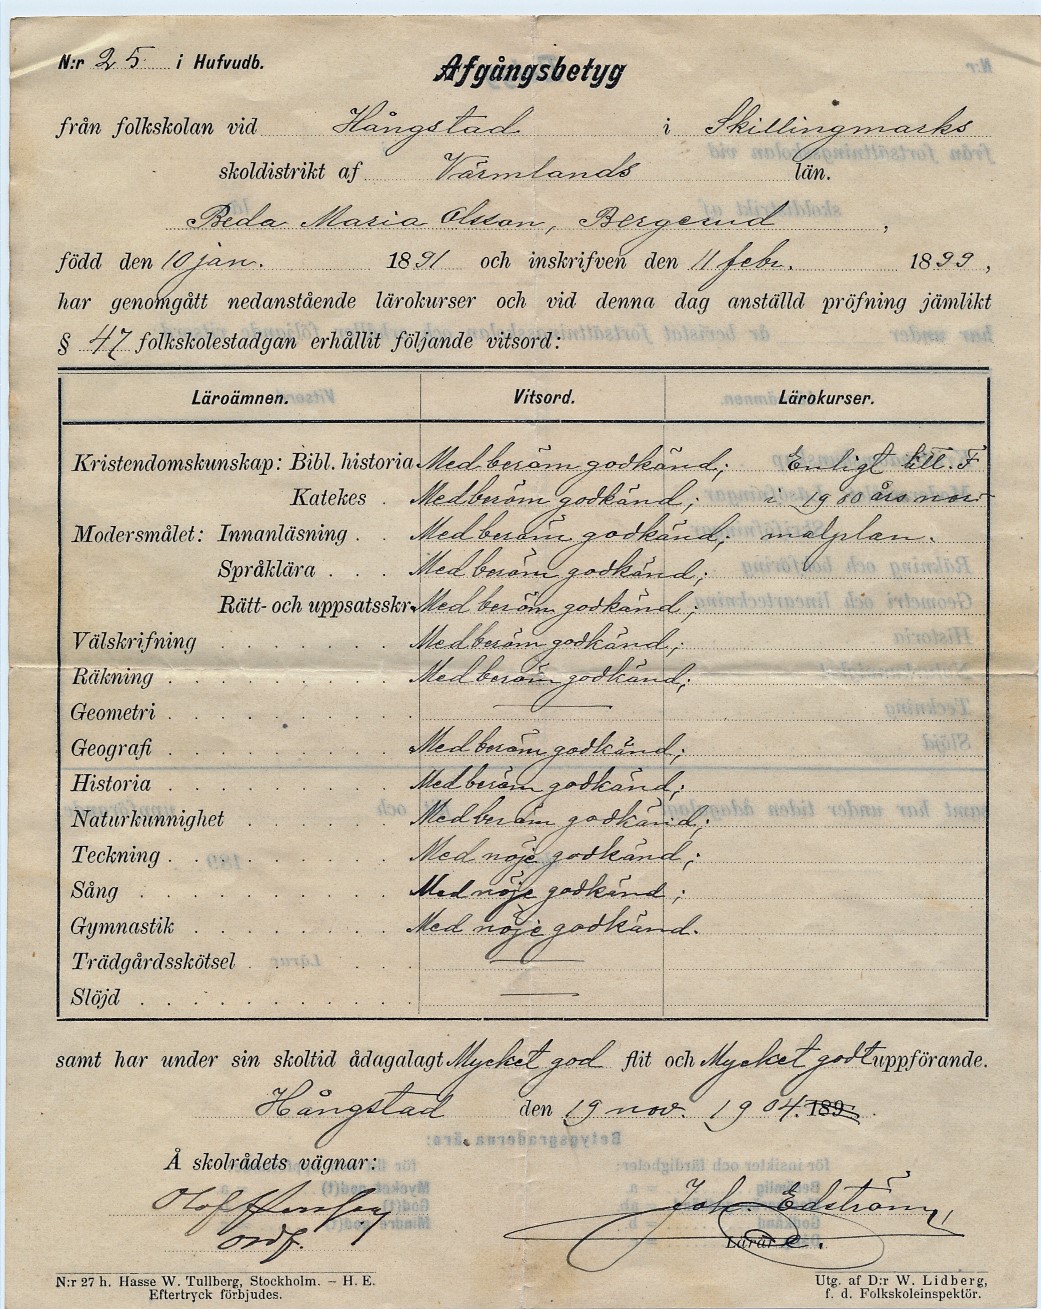 N:r 25 i Hufvudb.
Afgångsbetyg
från folkskolan vid Hångstad i Skillingmarks
skoldistrikt af Värmlands län.
Beda Maria Olsson, Bergerud,
född den 10 jan. 1891 och inskrifven den 11 febr. 1899,
har genomgått nedanstående lärokurser och vid denna dag anställd pröfning jämlikt
§ 47 folkskolestadgan erhållit följande vitsord:
Läroämnen. Vitsord. Lärokurser.
Kristendomskunskap: Bibl. historia Med beröm godkänd; Enligt till. F
Katekes . Med beröm godkänd; i 1900 års nor-
Modersmålet: Innanläsning . . Med beröm godkänd; malplan.
Språklära . . . Med beröm godkänd;
Rätt- och uppsatsskr. Med beröm godkänd;
Välskrifning . . . . . . Med beröm godkänd;
Räkning . . . . . . . Med beröm godkänd;
Geometri . . . . . . . —
Geografi . . . . . . . Med beröm godkänd;
Historia . . . . . . . Med beröm godkänd;
Naturkunnighet . . . . . Med beröm godkänd;
Teckning . . . . . . . Med nöje godkänd;
Sång . . . . . . . . Med nöje godkänd;
Gymnastik . . . . . . Med nöje godkänd.
Trädgårdsskötsel . . . . . —
Slöjd . . . . . . . . —
samt har under sin skoltid ådagalagt Mycket god flit och Mycket godt uppförande.
Hångstad den 19 nov. 1904. 189
Å skolrådets vägnar:
Olof
ordf.
Joh. Edström,
Lärare.
N:r 27 h. Hasse W. Tullberg, Stockholm. – H. E.
Eftertryck förbjudes.
Utg. af D:r W. Lidberg,
f. d. Folkskoleinspektör.